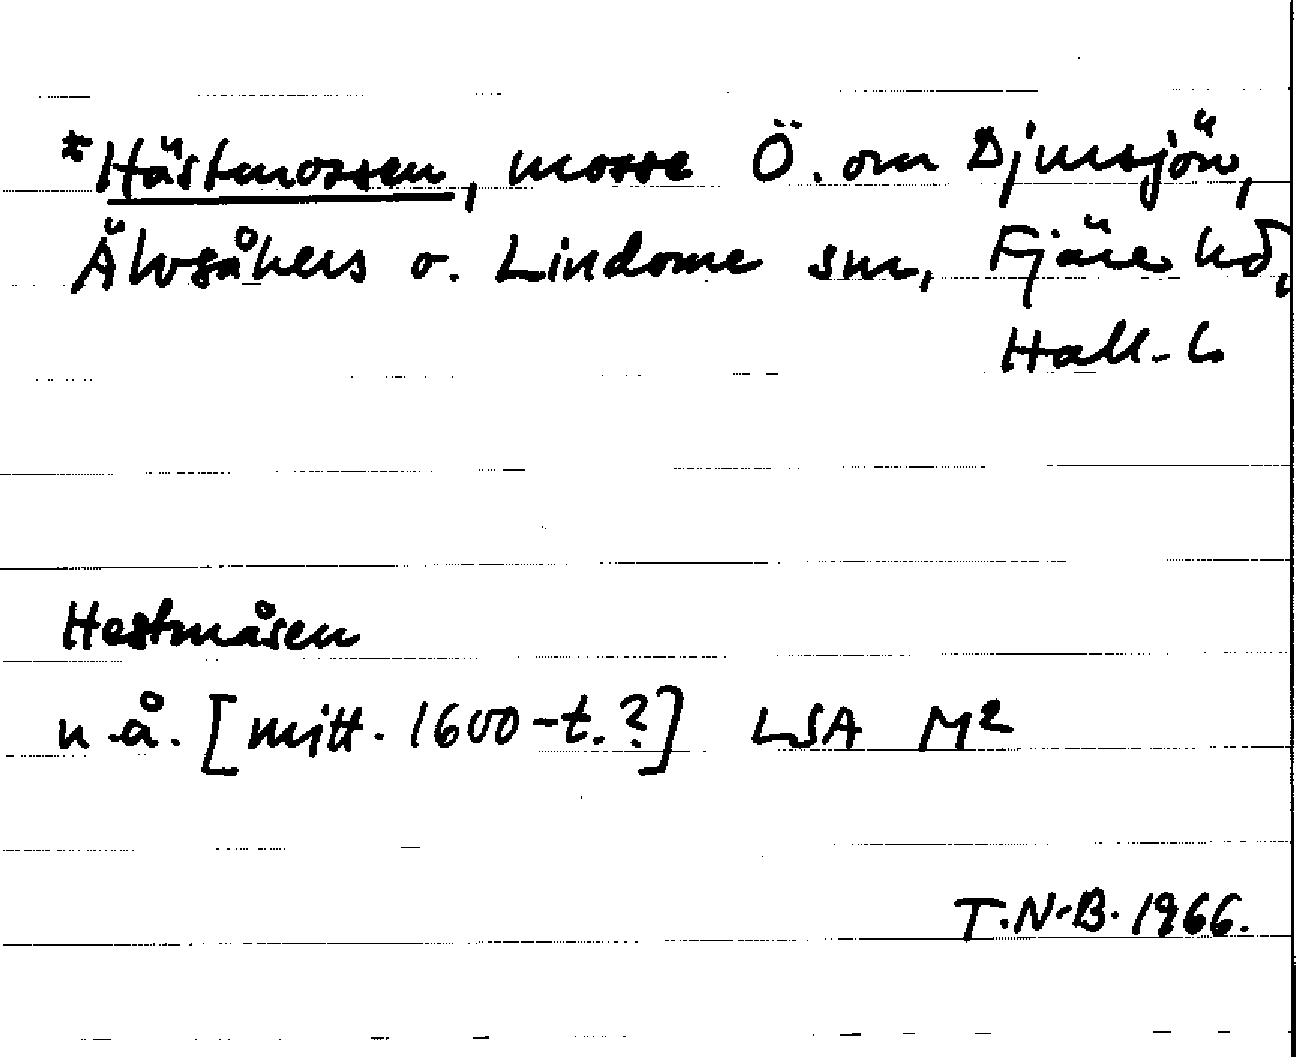 *Hästmossen, mosse Ö. om Djursjön,
Älvsåkers o. Lindome snr, Fjäre hd,
Hall. l.
Hestmåsen
u.å. [mitt. 1600-t.?] LSA M²
T.N-B. 1966.